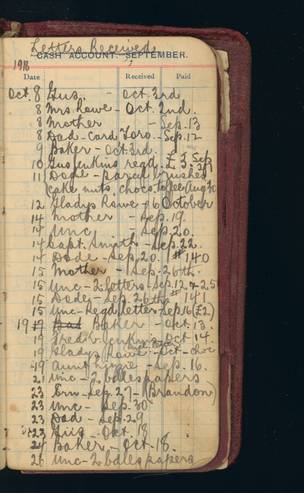 Letters Received
CASH ACCOUNT. SEPTEMBER.
1916
Date Received Paid
Oct. 8 Gus. - Oct 3rd
8 Mrs Rowe - Oct. 2nd.
8 Mother - Sep. 13
8 Dad - Card Toro. - Sep. 12
9 Baker - Oct. 3rd.
10 Gus Jenkins regd. £5. Sep
11 Dode - parcel brushes
cake nuts, chocs, toffee Aug
12 Gladys Rowe - 6 October
14 Mother - Sep. 19.
14 Unc - Sep. 20.
14 Capt. Smith - Sep. 22.
14 Dode - Sep. 20. #140
15 Mother - Sep. 26th.
15 Unc - 2 letters - Sep. 12 & 25
15 Dode - Sep. 26th #141
15 Unc - Regd Letter - Sep 16 (£2)
19 Baker - Oct. 13.
19 Oct 14
19 Gladys Rowe - Oct
19 Aunt - Sep. 16.
21 Unc - 2 bales papers
23 Ern - Sep. 27 - (Brandon)
23 Unc - Sep. 30
23 Dad - Sep. 29
23 Gus - Oct. 18
24 Baker - Oct. 18.
26 Unc - 2 bales papers